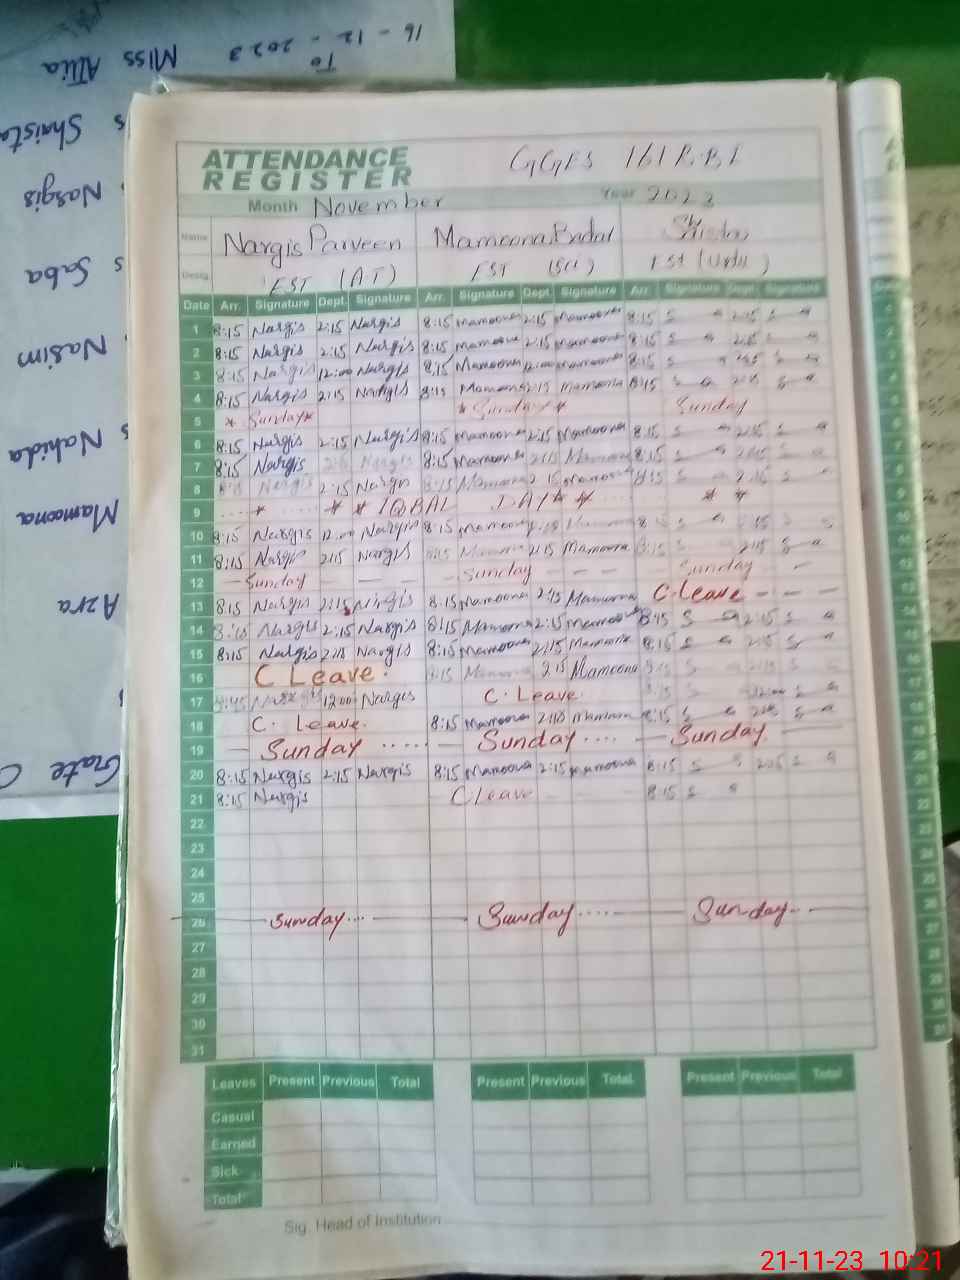 16 - 12 - 2023
To
Miss Atia
Shaista
Nargis
Saba
Nasim
Nahida
Mamoona
Azra
Gate
ATTENDANCE REGISTER
GGES 161 R.B I
Month November Year 2023
Name Nargis Parveen Mamoona
Desig. EST (AT) EST EST (Urdu)
Date Arr. Signature Dept. Signature Arr. Signature Dept. Signature Arr. Signature Dept. Signature
1 8:15 Nargis 2:15 Nargis 8:15 Mamoona 2:15 Mamoona 8:15 S 2:15 S
2 8:15 Nargis 2:15 Nargis 8:15 Mamoona 2:15 Mamoona 8:15 S 2:15 S
3 8:15 Nargis 12:00 Nargis 8:15 Mamoona 12:00 Mamoona 8:15 S S
4 8:15 Nargis 2:15 Nargis 8:15 Mamoona 2:15 Mamoona 8:15 S 2:15 S
5 * Sunday * * Sunday * Sunday
6 8:15 Nargis 2:15 Nargis 8:15 Mamoona 2:15 Mamoona 8:15 S 2:15 S
7 8:15 Nargis Nargis 8:15 Mamoona 2:15 Mamoona 8:15 S 2:15 S
8 Nargis 2:15 Nargis 8:15 Mamoona 2:15 Mamoona 8:15 S 2:15 S
9 * * * IQBAL DAY * * * *
10 8:15 Nargis 12:00 Nargis 8:15 Mamoona Mamoona 8:15 S S
11 8:15 Nargis 2:15 Nargis Mamoona 2:15 Mamoona 8:15 S 2:15 S
12 — Sunday — — — Sunday — — — Sunday —
13 8:15 Nargis 2:15 Nargis 8:15 Mamoona 2:15 Mamoona C. Leave - - -
14 8:15 Nargis 2:15 Nargis 8:15 Mamoona 2:15 Mamoona 8:15 S 2:15 S
15 8:15 Nargis 2:15 Nargis 8:15 Mamoona 2:15 Mamoona 8:15 S 2:15 S
16 C Leave. 8:15 Mamoona 2:15 Mamoona 8:15 S 2:15 S
17 Nargis 12:00 Nargis C. Leave 8:15 S 12:00 S
18 C. Leave. 8:15 Mamoona 2:15 Mamoona 8:15 S 2:15 S
19 — Sunday ..... — Sunday .... — Sunday. —
20 8:15 Nargis 2:15 Nargis 8:15 Mamoona 2:15 Mamoona 8:15 S 2:15 S
21 8:15 Nargis C Leave 8:15 S
22
23
24
25
26 — Sunday.... — Sunday.... — Sunday.. —
27
28
29
30
31
Leaves Present Previous Total Present Previous Total Present Previous Total
Casual
Earned
Sick
Total
Sig. Head of Institution
21-11-23 10:21